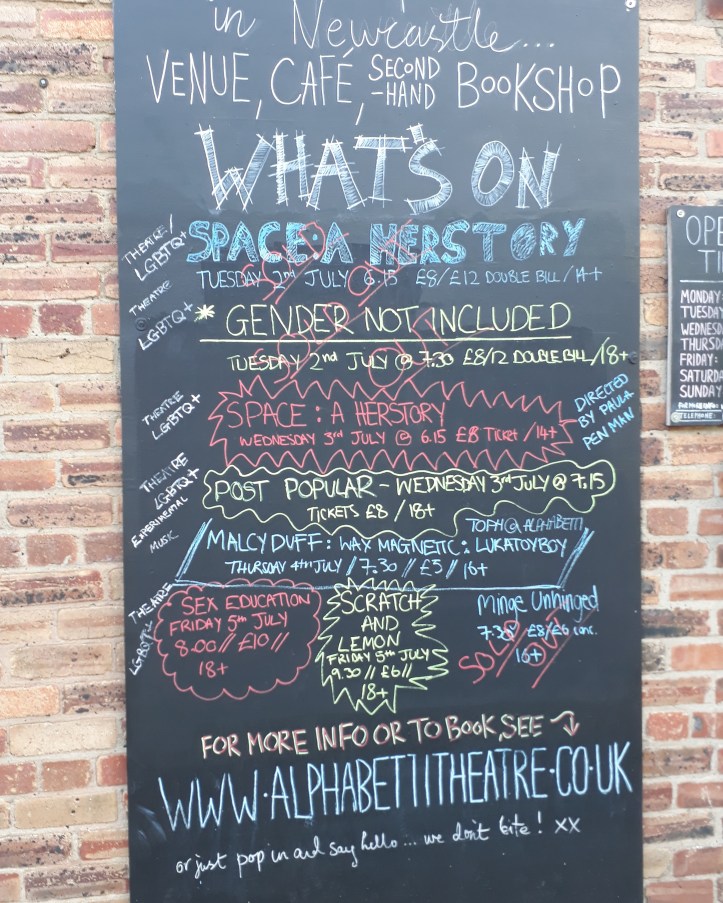 in Newcastle...
VENUE, CAFÉ, SECOND-HAND BOOKSHOP
WHAT'S ON
THEATRE/
LGBTQ+
SPACE: A HERSTORY
TUESDAY 2nd JULY 6.15 £8/£12 DOUBLE BILL/14+
SOLD OUT
THEATRE
LGBTQ+
* GENDER NOT INCLUDED
TUESDAY 2nd JULY @ 7.30 £8/12 DOUBLE BILL/18+
SOLD OUT
THEATRE
LGBTQ+
SPACE: A HERSTORY
WEDNESDAY 3rd JULY @ 6.15 £8 TICKET /14+
DIRECTED
BY PAULA
PENMAN
THEATRE
LGBTQ+
EXPERIMENTAL
MUSIC
POST POPULAR - WEDNESDAY 3rd JULY @ 7.15
TICKETS £8 / 18+
TOPH @ ALPHABETTI
MALCY DUFF: WAX MAGNETIC: LUKATOYBOY
THURSDAY 4th JULY / 7.30 // £5 // 16+
THEATRE
LGBTQ+
SEX EDUCATION
FRIDAY 5th JULY
8.00 // £10 //
18+
SCRATCH
AND
LEMON
FRIDAY 5th JULY
9.30 // £6 //
18+
Minge Unhinged
7.30 £8/£6 conc.
16+
SOLD OUT
FOR MORE INFO OR TO BOOK, SEE
WWW.ALPHABETTITHEATRE.CO.UK
or just pop in and say hello... we don't bite! xx
OPE
TI
MONDAY
TUESDAY
WEDNESD
THURSD
FRIDAY:
SATURDA
SUNDAY
TELEPHONE